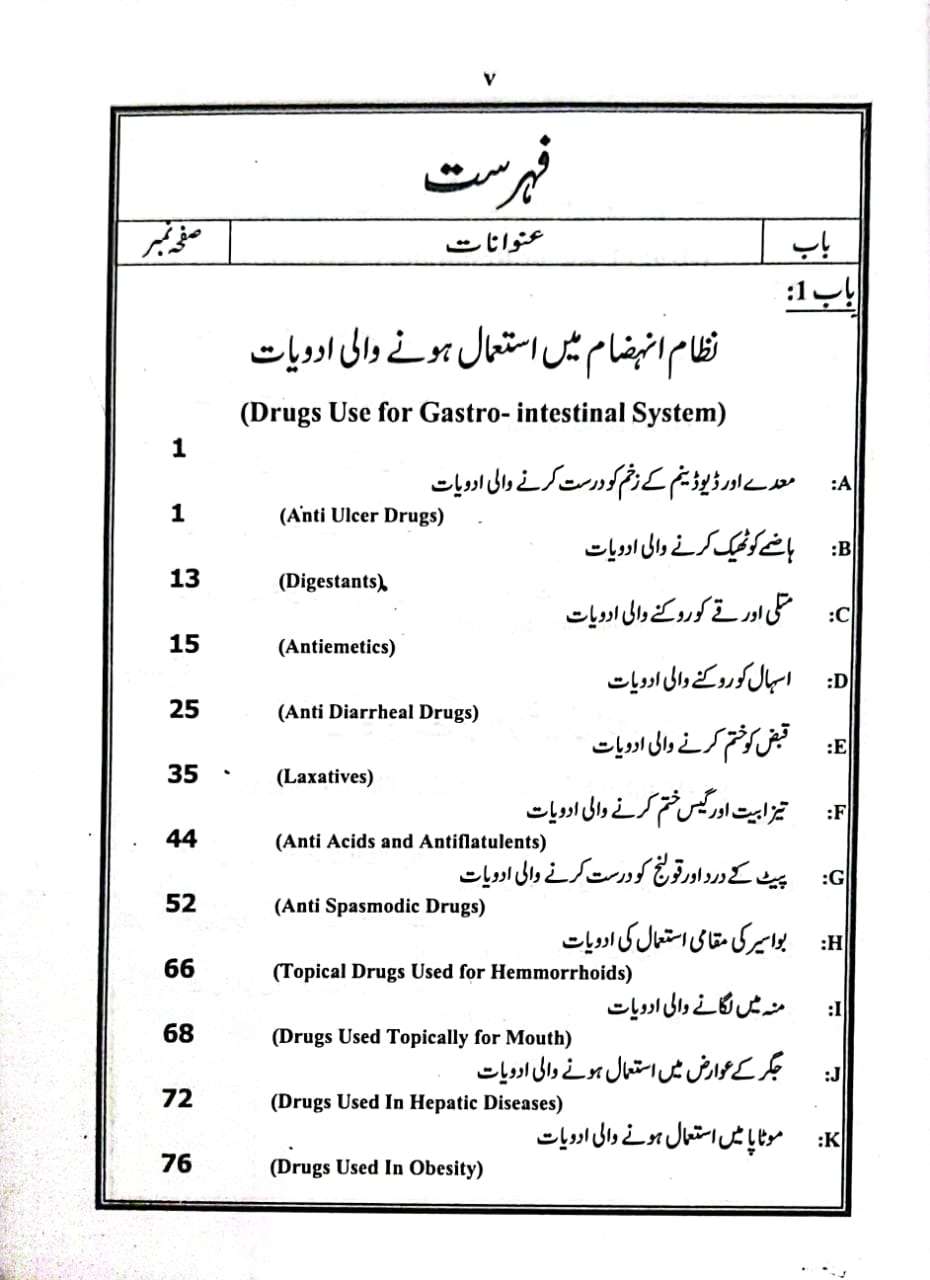 ۷
فہرست
باب عنوانات صفحہ نمبر
باب 1:
نظام انہضام میں استعمال ہونے والی ادویات
(Drugs Use for Gastro- intestinal System)
1
A: معدے اور ڈیوڈینم کے زخم کو درست کرنے والی ادویات
(Anti Ulcer Drugs) 1
B: ہاضمے کو ٹھیک کرنے والی ادویات
(Digestants) 13
C: متلی اور قے کو روکنے والی ادویات
(Antiemetics) 15
D: اسہال کو روکنے والی ادویات
(Anti Diarrheal Drugs) 25
E: قبض کو ختم کرنے والی ادویات
(Laxatives) 35
F: تیزابیت اور گیس ختم کرنے والی ادویات
(Anti Acids and Antiflatulents) 44
G: پیٹ کے درد اور قولنج کو درست کرنے والی ادویات
(Anti Spasmodic Drugs) 52
H: بواسیر کی مقامی استعمال کی ادویات
(Topical Drugs Used for Hemmorrhoids) 66
I: منہ میں لگانے والی ادویات
(Drugs Used Topically for Mouth) 68
J: جگر کے عوارض میں استعمال ہونے والی ادویات
(Drugs Used In Hepatic Diseases) 72
K: موٹاپا میں استعمال ہونے والی ادویات
(Drugs Used In Obesity) 76